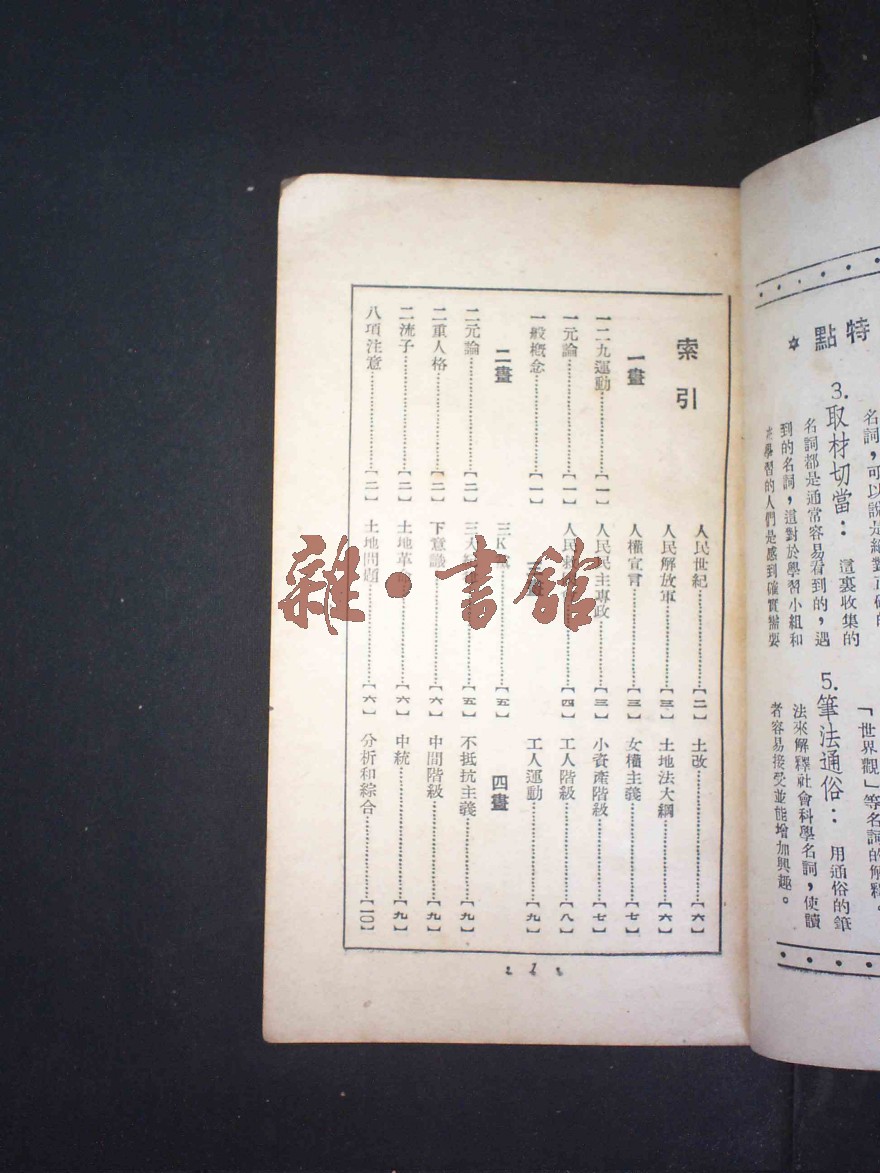 特點
名詞，可以說是絕對正確的
3. 取材切當： 這裏收集的
名詞都是通常容易看到的，遇
到的名詞，這對於學習小組和
在學習的人們是感到確實需要
「世界觀」等名詞的解釋。
5. 筆法通俗： 用通俗的筆
法來解釋社會科學名詞，使讀
者容易接受並能增加興趣。
索引
一畫
一二九運動…………【一】
一元論…………【一】
一般概念…………【一】
二畫
二元論…………【二】
二重人格…………【二】
二流子…………【二】
八項注意…………【二】
人民世紀…………【二】
人民解放軍…………【三】
人權宣言…………【三】
人民民主專政…………【三】
人民…………【四】
三畫
三K黨…………【五】
三大…………【五】
下意識…………【六】
土地革命…………【六】
土地問題…………【六】
土改…………【六】
土地法大綱…………【六】
女權主義…………【七】
小資產階級…………【七】
工人階級…………【八】
工人運動…………【九】
四畫
不抵抗主義…………【九】
中間階級…………【九】
中統…………【九】
分析和綜合…………【一〇】
1
雜·書館